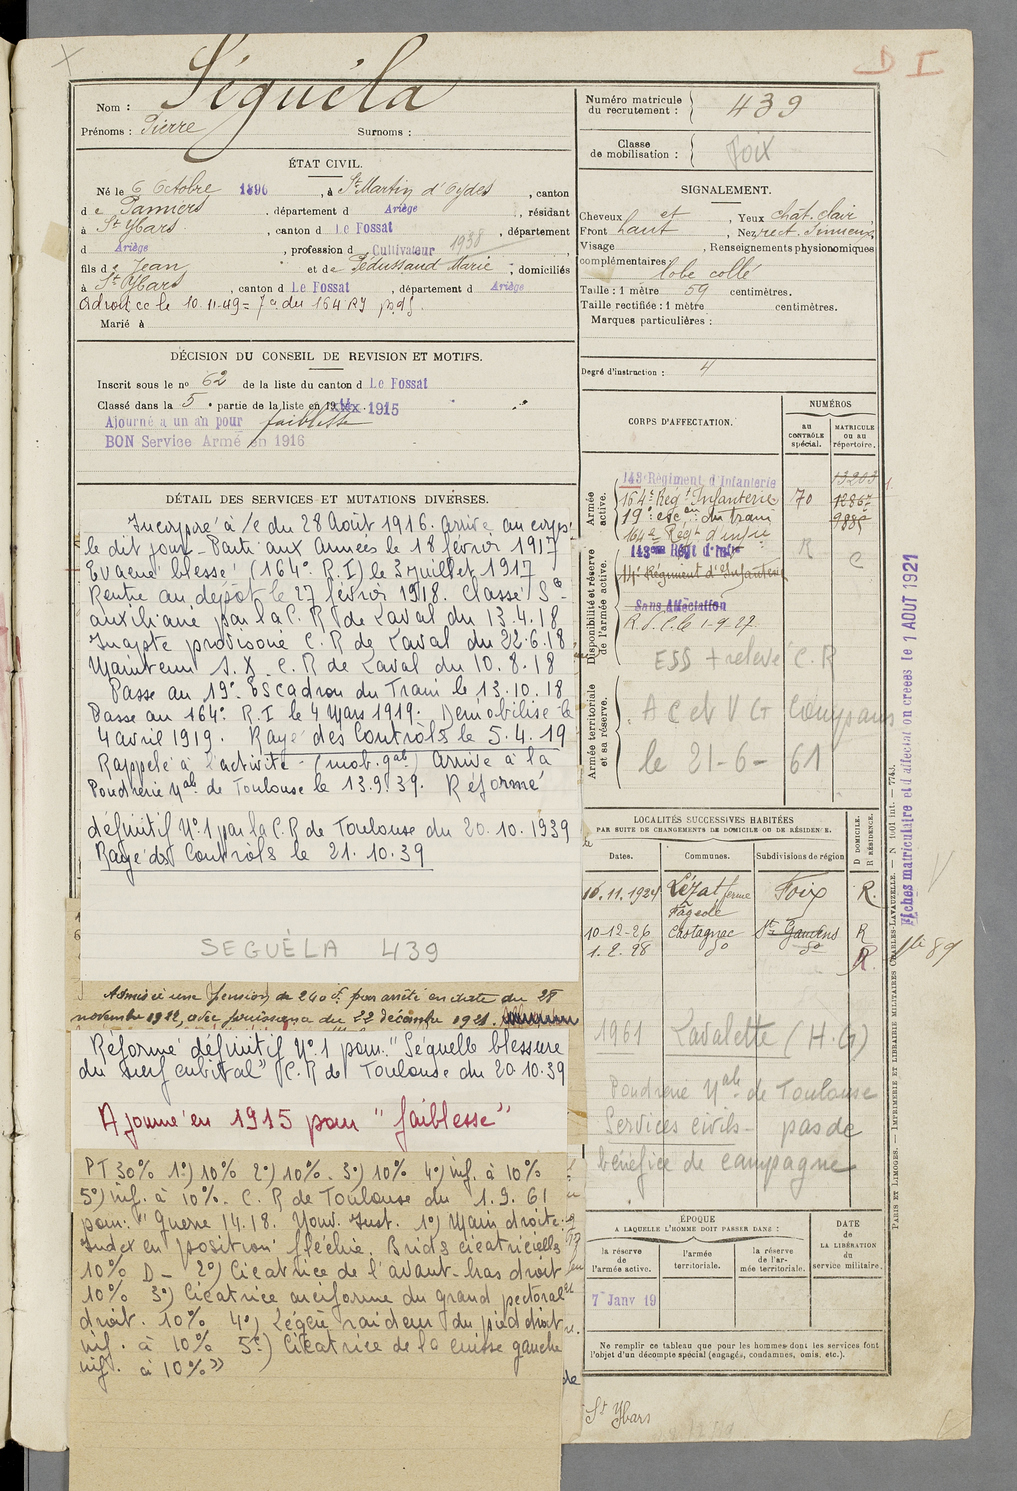 D I
Nom : Séguéla
Prénoms : Pierre Surnoms :
ÉTAT CIVIL.
Né le 6 Octobre 1896, à St Martin d'Oydes, canton
de Pamiers, département d Ariège, résidant
à St Ybars, canton d Le Fossat, département
d Ariège, profession d Cultivateur 1938
fils de Jean et de Pédussaud Marie, domiciliés
à St Ybars, canton d Le Fossat, département d Ariège
a droit ce le 10.11.49 = 7 du 164 RI
Marié à
DÉCISION DU CONSEIL DE REVISION ET MOTIFS.
Inscrit sous le nº 62 de la liste du canton d Le Fossat
Classé dans la 5e partie de la liste en 19 1915
Ajourné à un an pour faiblesse
BON Service Armé en 1916
DÉTAIL DES SERVICES ET MUTATIONS DIVERSES.
Incorporé à /c du 28 Août 1916. Arrivé au corps
le dit jour - Parti aux Armées le 18 février 1917
Evacué blessé (164º R.I) le 3 juillet 1917
Rentré au dépôt le 27 février 1918. Classé Sce
auxiliaire par la C.R de Laval du 13.4.18
Inapte provisoire C.R de Laval du 22.6.18
Maintenu S.X. C.R de Laval du 10.8.18
Passé au 19º Escadron du Train le 13.10.18
Passé au 164º R.I le 4 Mars 1919. Démobilisé le
4 avril 1919. Rayé des Contrôles le 5.4.19
Rappelé à l'activité - (mob. gale) Arrivé à la
Poudrerie Nale de Toulouse le 13.9.39. Réformé
définitif Nº1 par la C.R de Toulouse du 20.10.1939
Rayé des Contrôles le 21.10.39
SEGUÉLA 439
Admis à une pension de 240 f. par arrêté en date du 28
novembre 1922, avec jouissance du 22 décembre 1921.
Réformé définitif Nº1 pour "Séquelle blessure
du nerf cubital" C.R de Toulouse du 20.10.39
Ajourné en 1915 pour "faiblesse"
PT 30% 1º) 10% 2º) 10%. 3º) 10% 4º) inf. à 10%
5º) inf. à 10%. C.R de Toulouse du 1.9.61
pour: "Guerre 14.18. Nouv. Inst. 1º) Main droite:
Index en position fléchie. Brides cicatricielles
10% D - 2º) Cicatrice de l'avant-bras droit
10% 3º) Cicatrice arciforme du grand pectoral
droit. 10% 4º) Légère raideur du pied droit
inf. à 10% 5º) Cicatrice de la cuisse gauche
inf. à 10%"
Numéro matricule du recrutement : 439
Classe de mobilisation : Foix
SIGNALEMENT.
Cheveux et, Yeux chât. clair,
Front haut, Nez rect. sinueux,
Visage, Renseignements physionomiques
complémentaires: lobe collé
Taille : 1 mètre 59 centimètres.
Taille rectifiée : 1 mètre centimètres.
Marques particulières :
Degré d'instruction : 4
CORPS D'AFFECTATION.
NUMÉROS
AU CONTRÔLE spécial.
MATRICULE OU AU répertoire.
Armée active.
143e Régiment d'Infanterie 13203
164e Régt Infanterie 70 12867
19e escon du train 9885
164e Régt d'infie
Disponibilité et réserve de l'armée active.
143ème Régt d'Infie
14e Régiment d'Infanterie
Sans Affectation
R.S.P. le 1-9-27.
ESS + relevé C.R
Armée territoriale et sa réserve.
AC et VG Compans
le 21-6-61
LOCALITÉS SUCCESSIVES HABITÉES
PAR SUITE DE CHANGEMENTS DE DOMICILE OU DE RÉSIDENCE.
D DOMICILE. R RÉSIDENCE.
Dates. Communes. Subdivisions de région
10.11.1924 Lézat ferme Fagede Foix R.
10-12-26 Castagnac St Gaudens R
1.2.28 do do R.
1961 Lavalette (H.G)
Poudrerie Nale de Toulouse
Services civils - pas de
bénéfice de campagne
ÉPOQUE
A LAQUELLE L'HOMME DOIT PASSER DANS :
DATE DE LA LIBÉRATION du service militaire.
la réserve de l'armée active.
l'armée territoriale.
la réserve de l'armée territoriale.
7 Janv 19
Ne remplir ce tableau que pour les hommes dont les services font
l'objet d'un décompte spécial (engagés, condamnés, omis, etc.).
St Ybars
Fiches matriculaire et d'affectation créées le 1 AOUT 1921
PARIS ET LIMOGES. — IMPRIMERIE ET LIBRAIRIE MILITAIRES CHARLES-LAVAUZELLE. — N 1001 int. — 774J.